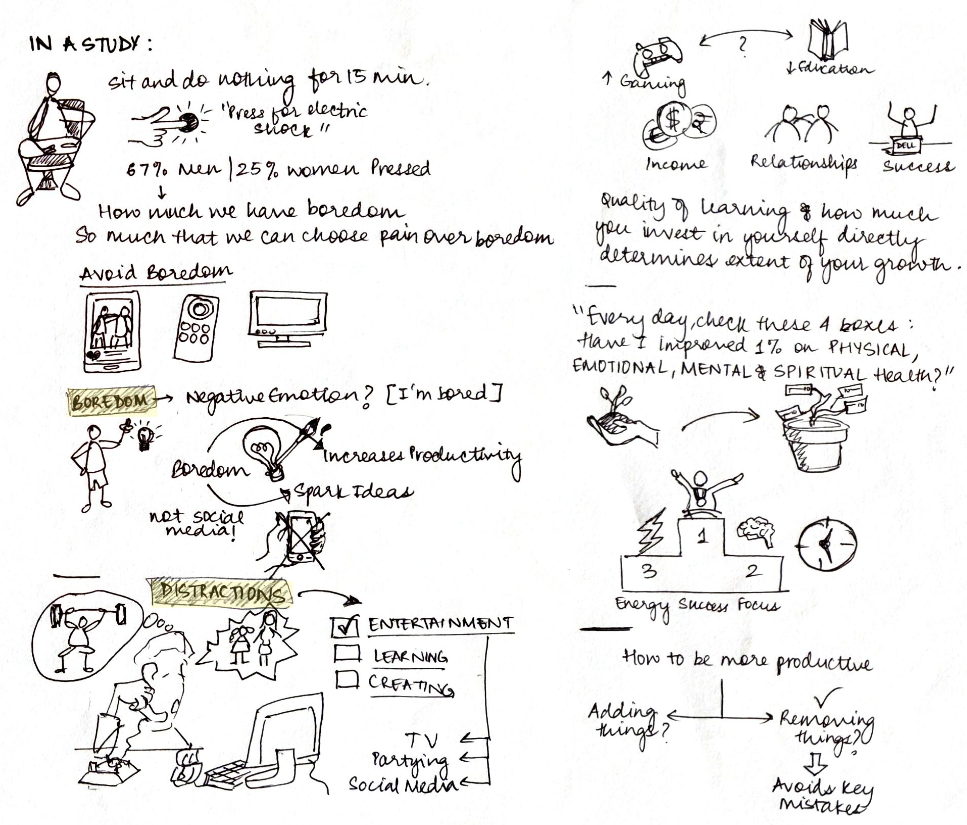 IN A STUDY:
sit and do nothing for 15 min.
"Press for electric
shock"
67% Men | 25% women Pressed
How much we have boredom
So much that we can choose pain over boredom
Avoid Boredom
BOREDOM → Negative Emotion? [I'm bored]
Boredom
Increases Productivity
Spark Ideas
not social
media!
DISTRACTIONS
ENTERTAINMENT
LEARNING
CREATING
TV
Partying
Social Media
?
↑ Gaming
↓ Education
$
₹
DELL
Income
Relationships
Success
Quality of learning & how much
you invest in yourself directly
determines extent of your growth.
"Every day, check these 4 boxes:
Have I improved 1% on PHYSICAL,
EMOTIONAL, MENTAL & SPIRITUAL Health?"
1
3
2
Energy Success Focus
How to be more productive
Adding
things?
Removing
things?
Avoids key
mistakes